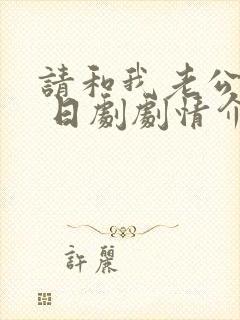 請和我老公
日劇劇情介
許麗